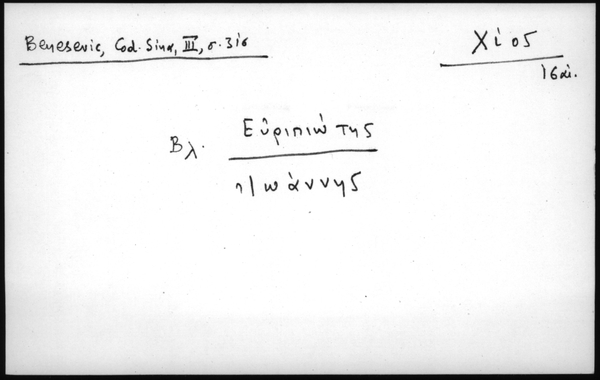 Benesevic, Cod. Sina, III, σ. 316
Χίος
16 αἰ.
Βλ. Εὐριπιώτης
Ἰωάννης